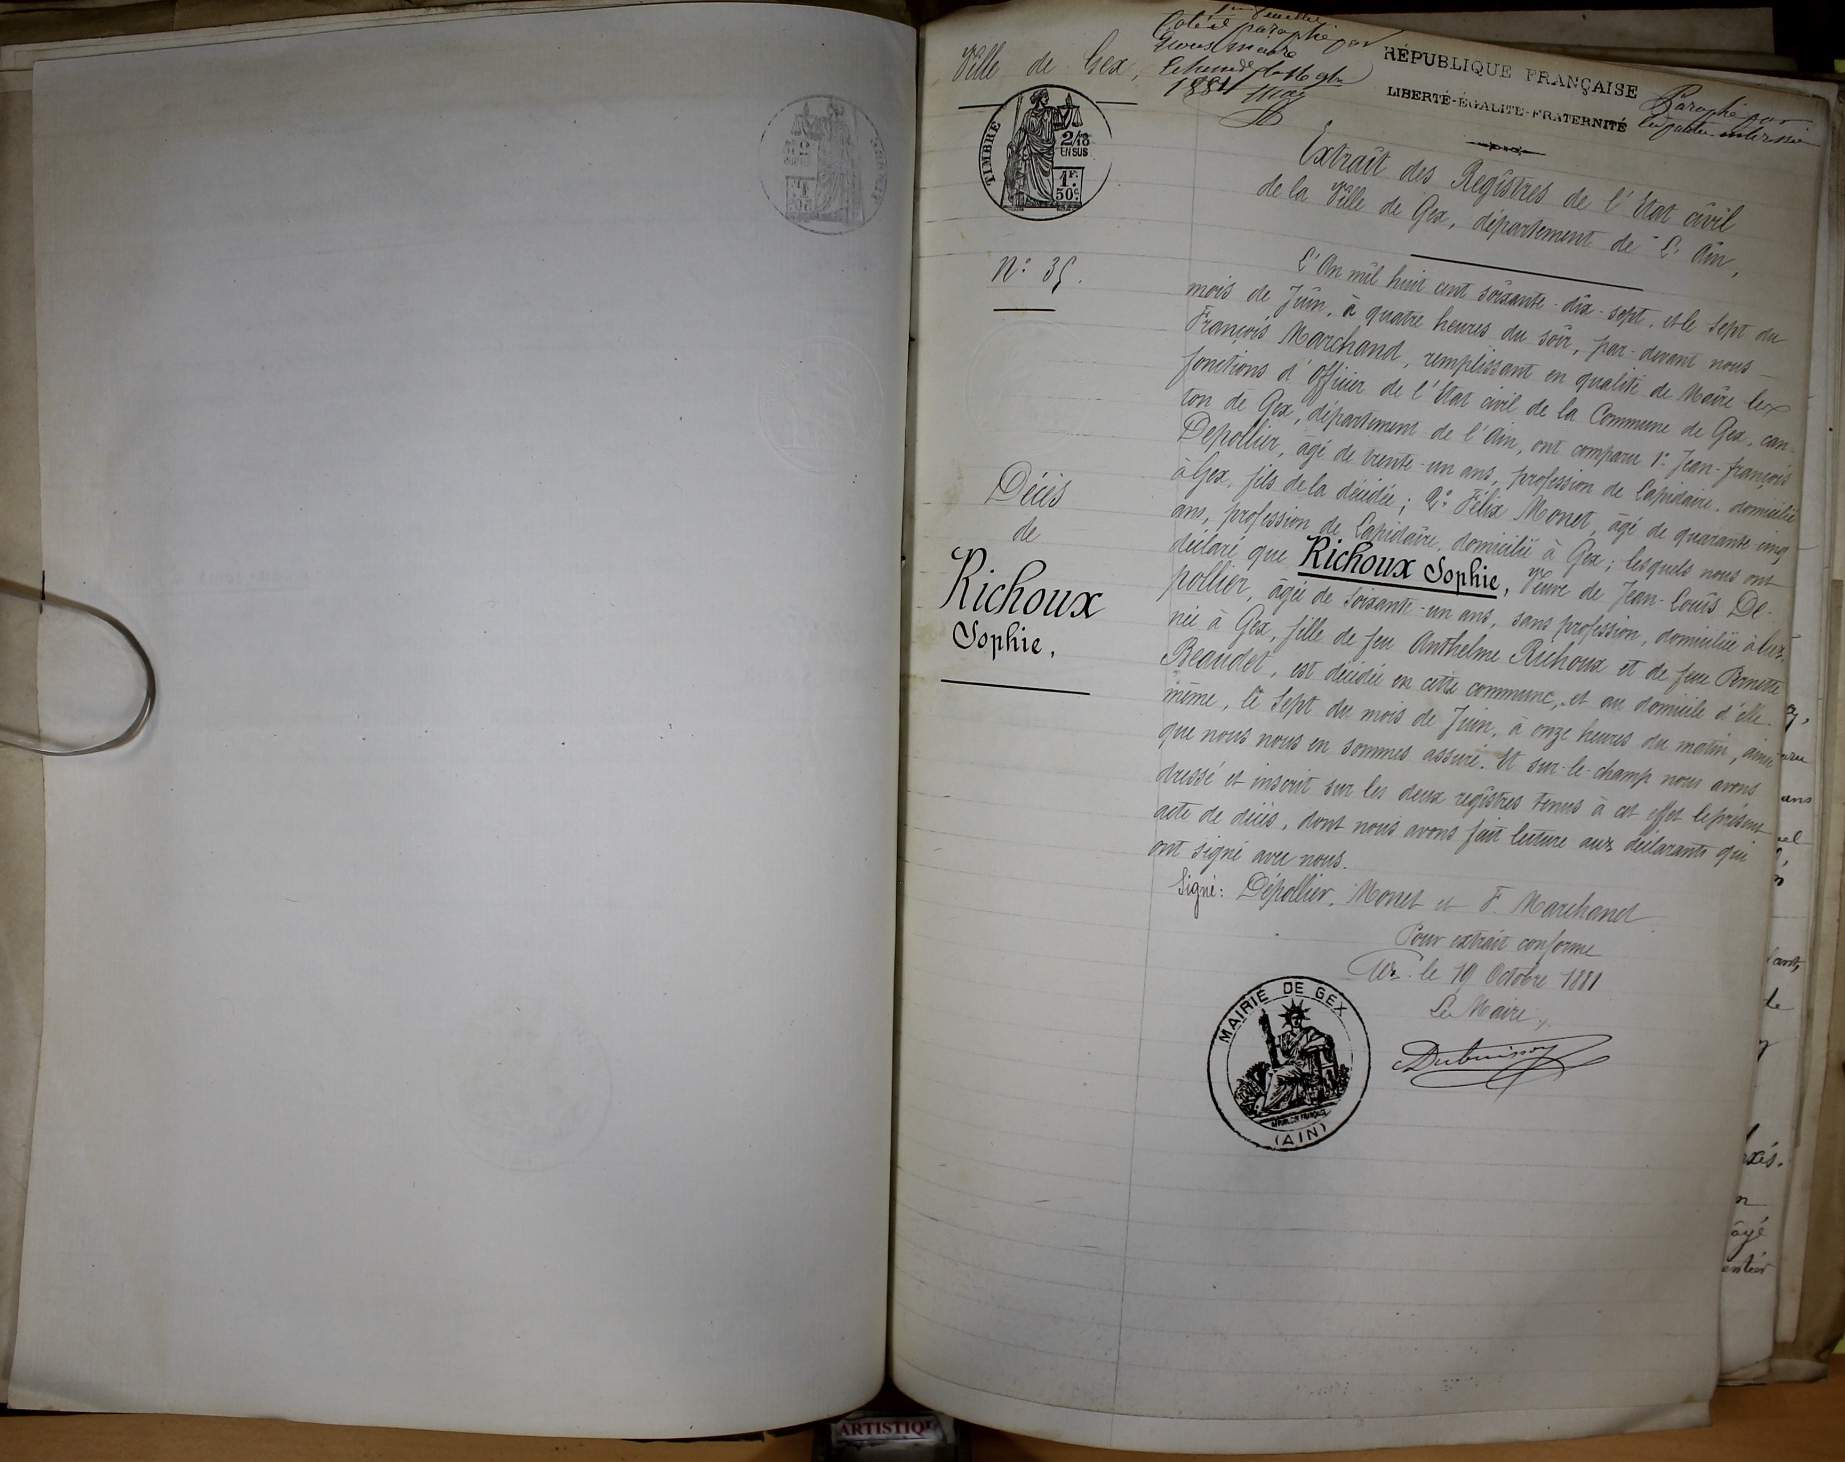 Ville de Gex,
Coté & paraphé par
1881
RÉPUBLIQUE FRANÇAISE
LIBERTÉ-ÉGALITÉ-FRATERNITÉ
Paraphé par
TIMBRE
2/10
EN SUS
1F.
50c.
Extrait des Registres de l'Etat civil
de la Ville de Gex, département de L'Ain,
N.° 35.
L'An mil huit cent soixante-dix-sept, et le sept du
mois de Juin, à quatre heures du soir, par-devant nous
François Marchand, remplissant en qualité de Maire les
fonctions d'Officier de l'Etat civil de la Commune de Gex, can-
ton de Gex, département de l'Ain, ont comparu 1.° Jean-françois
Depollier, âgé de trente-un ans, profession de Lapidaire, domicilié
à Gex, fils de la décédée; 2.° Félix Monet, âgé de quarante-cinq
ans, profession de Lapidaire, domicilié à Gex; lesquels nous ont
déclaré que Richoux Sophie, Veuve de Jean-Louis De-
pollier, âgée de soixante-un ans, sans profession, domiciliée à Gex,
née à Gex, fille de feu Anthelme Richoux et de feue Pernette
Beaudet, est décédée en cette commune, et au domicile d'elle-
même, le sept du mois de Juin, à onze heures du matin, ainsi
que nous nous en sommes assuré. Et sur-le-champ nous avons
dressé et inscrit sur les deux registres tenus à cet effet le présent
acte de décès, dont nous avons fait lecture aux déclarants qui
ont signé avec nous.
Décès
de
Richoux
Sophie.
Signé: Dépollier, Monet et F. Marchand
Pour extrait conforme
Gex le 19 Octobre 1881
Le Maire,
Dubuisson
MAIRIE DE GEX
(AIN)
ARTISTIQUE